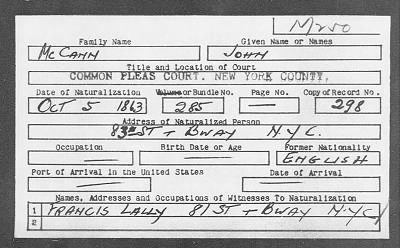 M250
Family Name Given Name or Names
McCann John
Title and Location of Court
COMMON PLEAS COURT. NEW YORK COUNTY.
Date of Naturalization Volume or Bundle No. Page No. Copy of Record No.
Oct 5 1863 285 — 298
Address of Naturalized Person
83d St + Bway N.Y.C.
Occupation Birth Date or Age Former Nationality
— — English
Port of Arrival in the United States Date of Arrival
— —
Names, Addresses and Occupations of Witnesses To Naturalization
1 Francis Lally 81 St + Bway N.Y.C
2